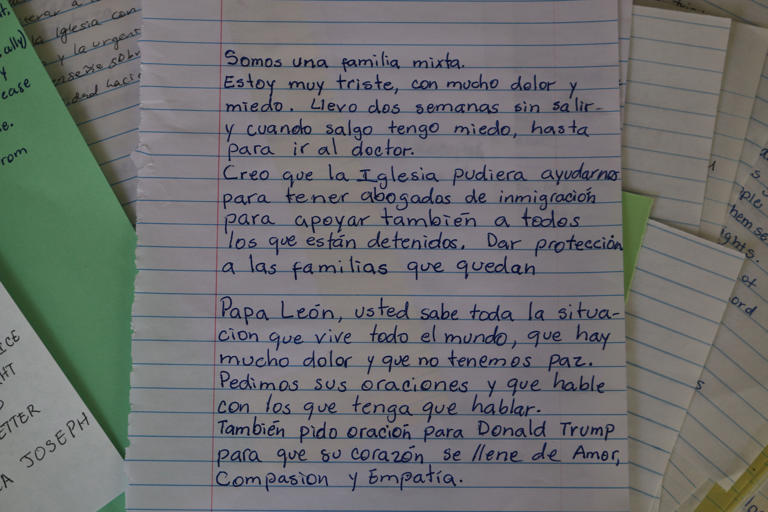 Somos una familia mixta.
Estoy muy triste, con mucho dolor y
miedo. Llevo dos semanas sin salir-
y cuando salgo tengo miedo, hasta
para ir al doctor.
Creo que la Iglesia pudiera ayudarnos
para tener abogados de inmigración
para apoyar también a todos
los que están detenidos. Dar protección
a las familias que quedan
Papa León, usted sabe toda la situa-
cion que vive todo el mundo, que hay
mucho dolor y que no tenemos paz.
Pedimos sus oraciones y que hable
con los que tenga que hablar.
También pido oración para Donald Trump
para que su corazón se llene de Amor,
Compasion y Empatía.
la Iglesia con
y la urgent
ally)
y
ease
e.
rom
JOSEPH
of
ord
s